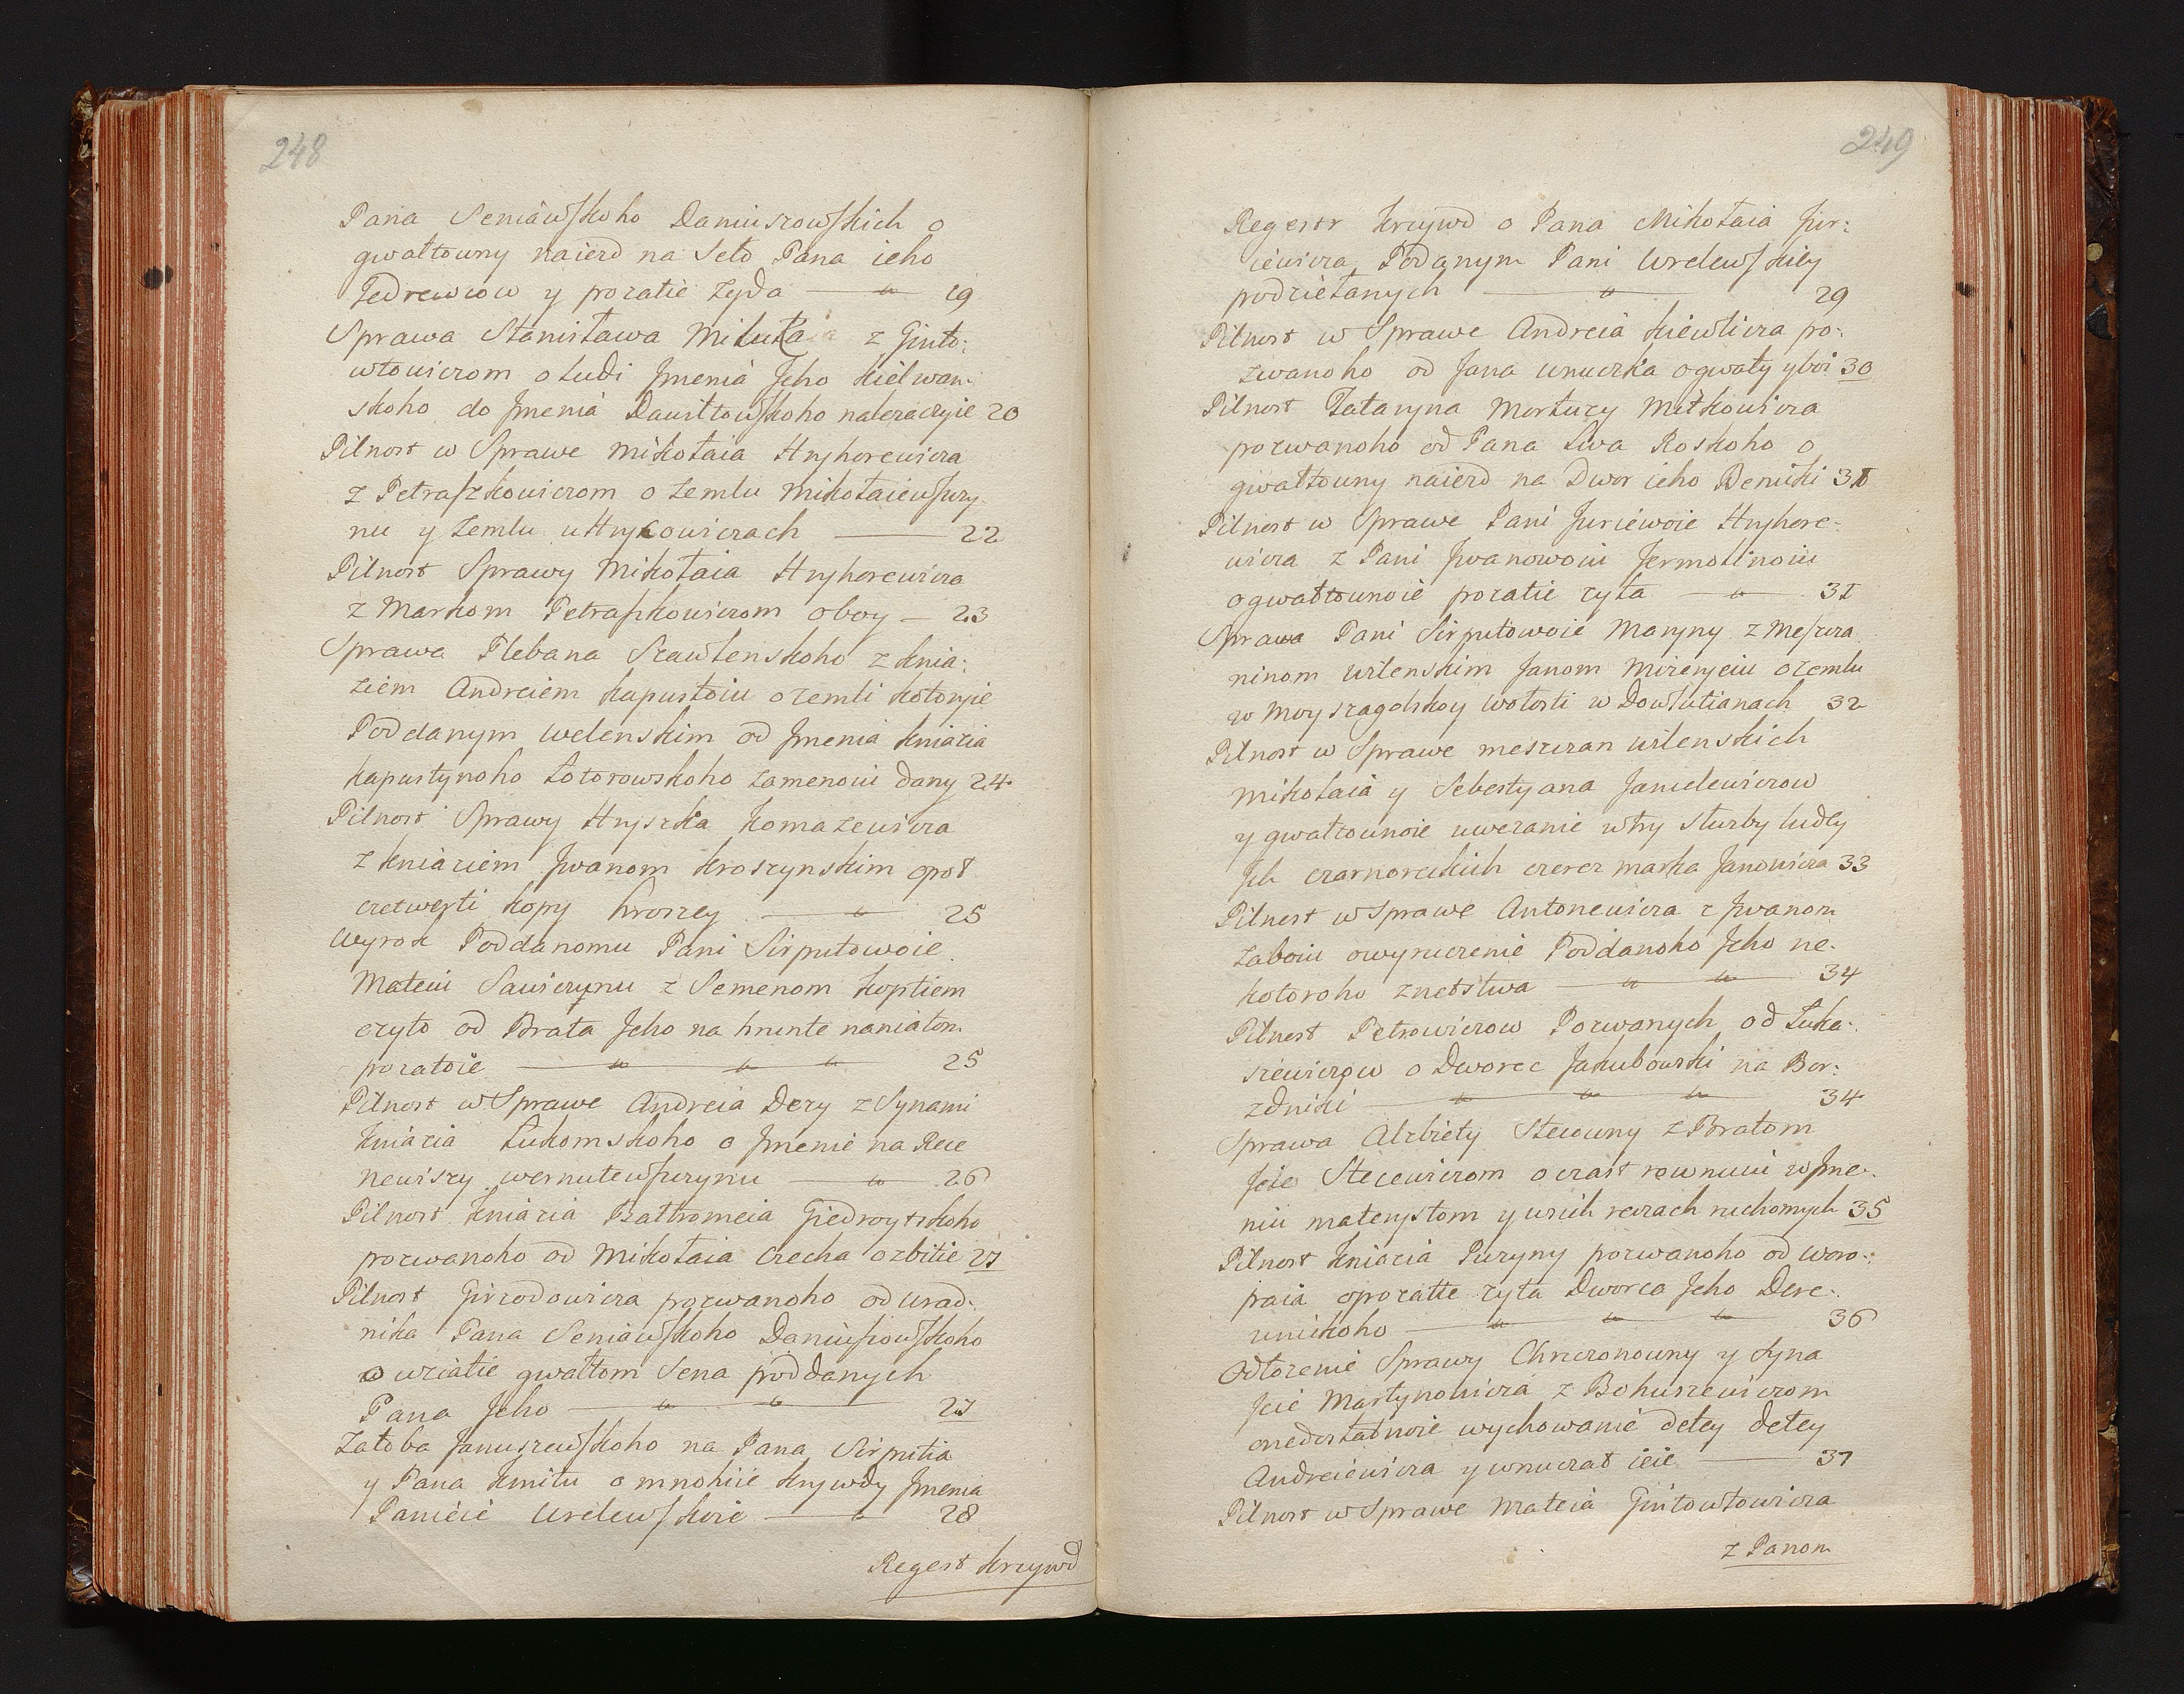 248
Pana Seniawskoho Daniuszowskich o
gwałtowny naiezd na Seło Pana ieho
Fedrewcow y pozatie Żyda — " 19
Sprawa Stanisława Mikuła z Ginto:
wtowiczom o ludi Jmenia Jeho Kielwan:
skoho do Jmenia Dawiltowskoho należaczyie 20
Pilnost w Sprawe Mikołaia Hryhorewicza
z Petraszkowiczom o Zemlu Mikołaiewszczy:
nu y Zemlu u Hrycowiczach — 22
Pilnost Sprawy Mikołaia Hryhorewicza
z Markom Petraszkowiczom o boy — 23
Sprawa Plebana Szawlenskoho z Knia:
ziem Andreiem Kapustoiu o zemli kotoryie
Poddanym Welenskim od Jmenia Kniazia
Kapustynoho Łotorowskoho zamenoiu dany 24
Pilnost Sprawy Hryszka Komazewicza
z Kniaziem Jwanom Kroszynskim o poł
czetwerti kopy hroszey — " 25
Wyrok Poddanomu Pani Sirputowoie
Mateiu Sawiczynu z Semenom Koptiem
czyto od Brata Jeho na hrunte naniatom
pozatoie — " " " 25
Pilnost w Sprawe Andreia Dezy z Synami
Kniazia Łukomskoho o Jmenie na Rece
Newiszy wernutewszczynu — " 26
Pilnost Kniazia Bałtromeia Giedroytskoho
pozwanoho od Mikołaia Czecha o zbitie 27
Pilnost Girzodowicza pozwanoho od Urad:
nika Pana Seniawskoho Daniuszowskoho
o wziatie gwałtom Sena poddanych
Pana Jeho — " " 27
Żałoba Januszewskoho na Pana Sirputia
y Pana Kmitu o mnohiie krywdy Jmenia
Panieie Urdewskoie — " 28
Regest krzywd
249
Regestr krzywd o Pana Mikołaia Jur:
iewicza Podanym Pani Urdewskiey
podziełanych — " 29
Pilnost w Sprawe Andreia Kiewlicza po:
zwanoho od Jana Wnuczka o gwałty y boi 30
Pilnost Tataryna Mortuzy Mitkowicza
pozwanoho od Pana Lwa Roskoho o
gwałtowny naiezd na Dwor ieho Deniski 31
Pilnost w Sprawe Pani Juriewoie Hryhore:
wicza z Pani Jwanowoiu Jermolinoiu
o gwałtownoie pozatie zyta — " 31
Sprawa Pani Sirputowoie Maryny z Meszcza
ninom Wilenskim Janom Mizeryeiu o zemlu
w Moyszagolskoy Wołosti w Dowlutianach 32
Pilnost w Sprawe meszczan Wilenskich
Mikołaia y Sebestyana Jancelewiczow
y gwałtownoie uwezanie w try służby ludey
Jch Czarnoreckich czerez Marka Janowicza 33
Pilnost w Sprawe Antonewicza z Jwanom
Zaboiu o wyruczenie Poddanoho Jeho ne:
kotoroho znetstwa — " " 34
Pilnost Petrowiczow Pozwanych od Łuka:
szewiczow o Dworec Jakubowski na Bor:
zdniki — " " " 34
Sprawa Alzbiety Stecowny z Bratom
Jeie Stecewiczom o czast rownuiu w Jme:
niu materystom y wsich reczach ruchomych 35
Pilnost Kniazia Puzyny pozwanoho od Woro:
paia o pozatie zyta Dworca Jeho Dere:
wnickoho — " " " 36
Odłozenie Sprawy Chrczonowny y Syna
Jeie Martynowicza z Bohuszewiczom
o nedostatnoie wychowanie detey detey
Andreiewicza y wnuczat ieie — 37
Pilnost w Sprawe Mateia Gintowtowicza
z Panom